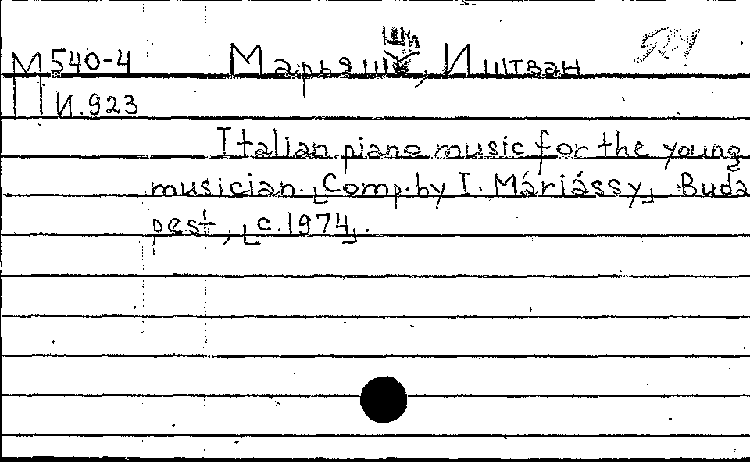 М 540-4 Марьяши, Иштван 524
И.923
Italian piano music for the young
musician. [Comp. by I. Máriássy] Buda
pest, [c.1974].